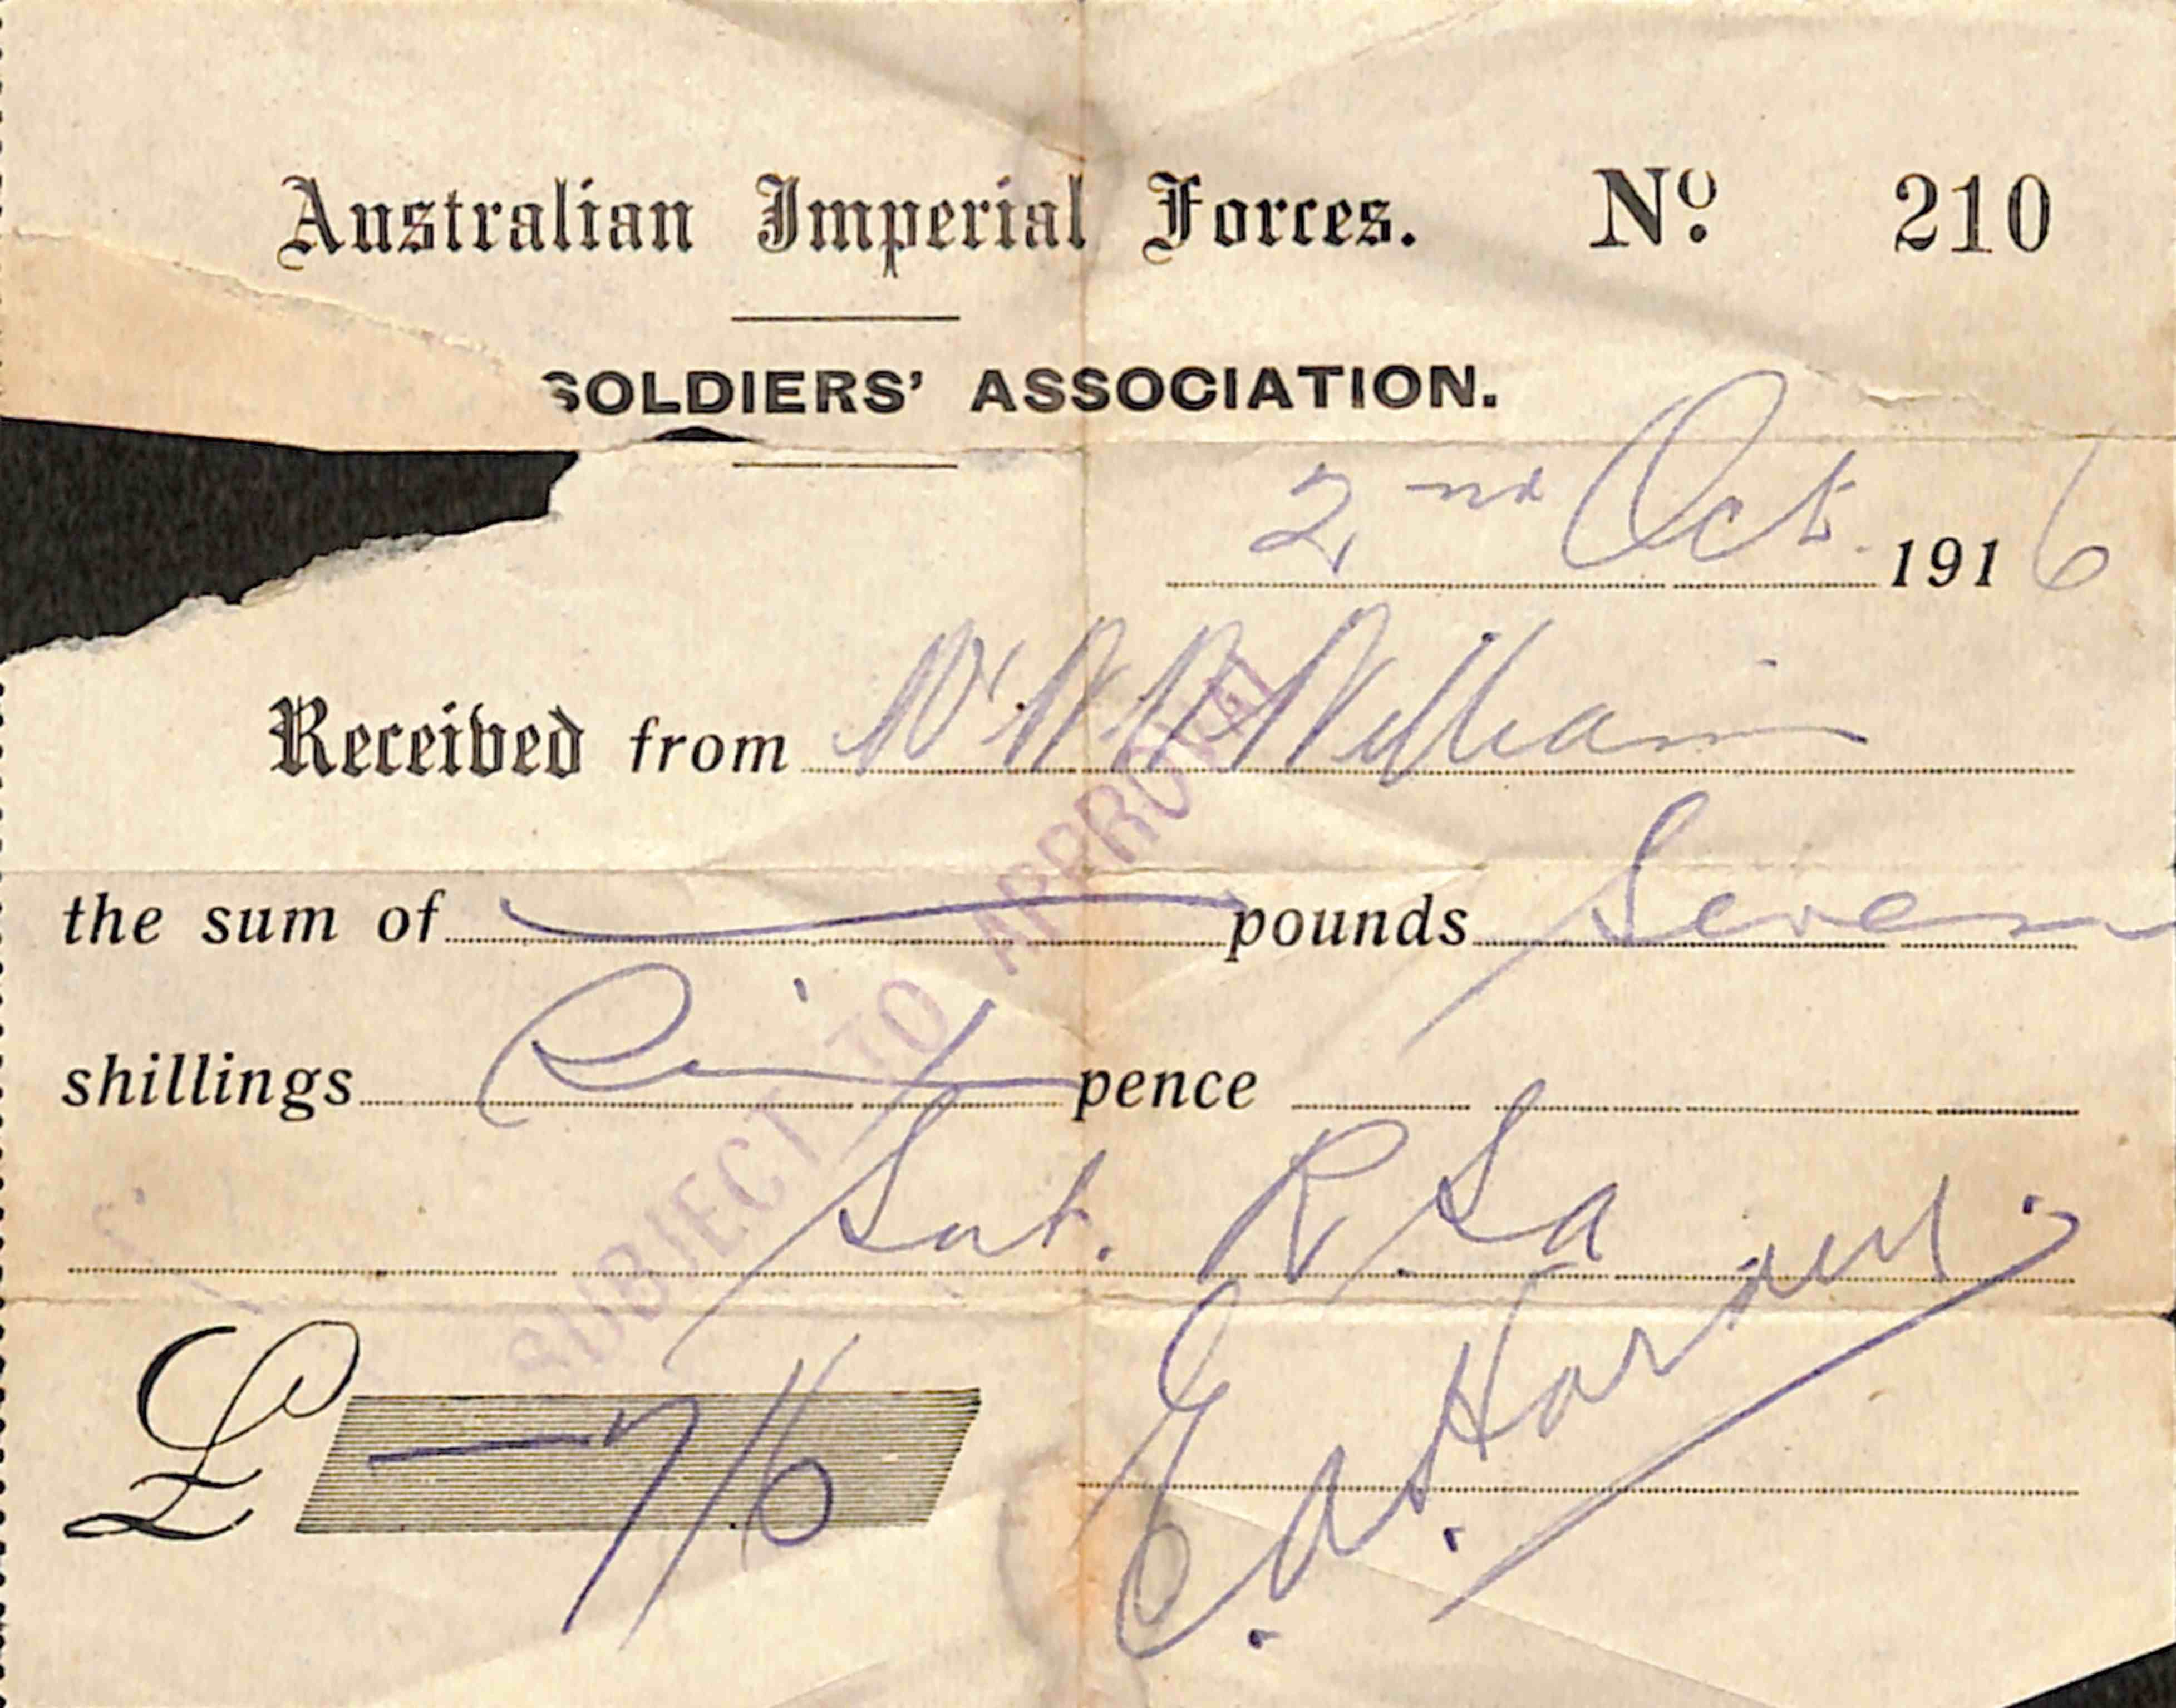 Australian Imperial Forces. No. 210
SOLDIERS' ASSOCIATION.
2nd Oct. 1916
Received from Williams
the sum of — pounds Seven
shillings Six pence
Sub. R.S.A
£ — 7/6
E. A. H.
SUBJECT TO APPROVAL